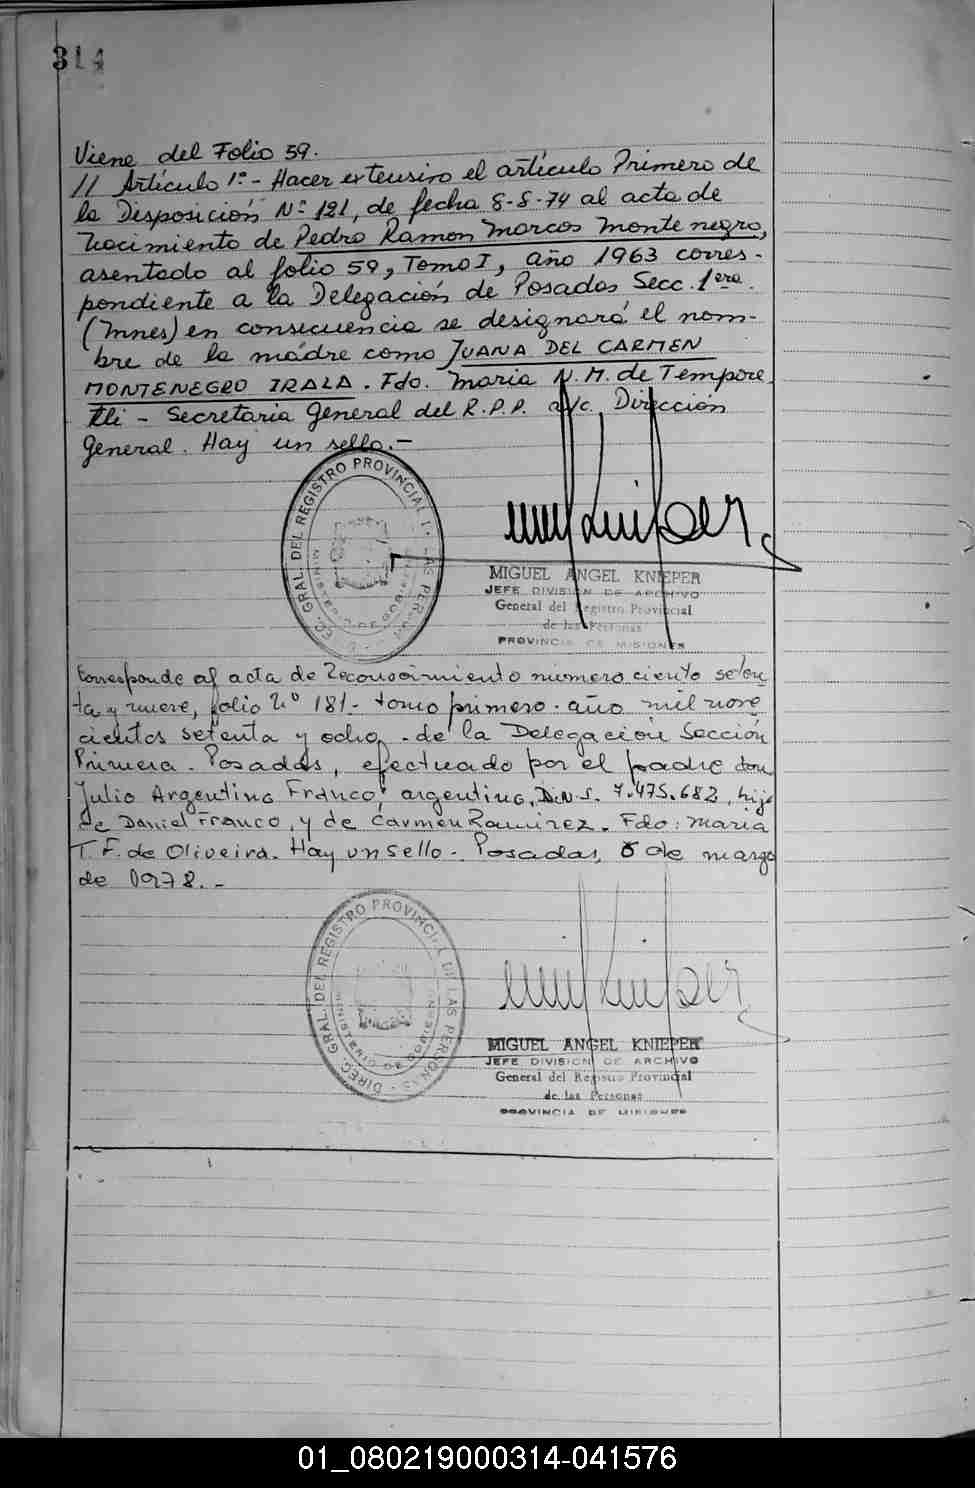 314
Viene del Folio 59.
// Artículo 1º - Hacer extensivo el artículo Primero de
la Disposición Nº 121, de fecha 8-8-74 al acta de
Nacimiento de Pedro Ramon Marcos Montenegro,
asentado al folio 59, Tomo I, año 1963 corres-
pondiente a la Delegación de Posadas Secc. 1era.
(Mnes) en consecuencia se designará el nom-
bre de la madre como JUANA DEL CARMEN
MONTENEGRO IRALA. Fdo. Maria N. M. de Tempore
tti - Secretaria General del R.P.P. a/c. Dirección
General. Hay un sello.-
GRAL. DEL REGISTRO PROVINCIAL
MIGUEL ANGEL KNIEPER
JEFE DIVISION DE ARCHIVO
General del Registro Provincial
de las Personas
PROVINCIA DE MISIONES
Corresponde al acta de Reconocimiento número ciento seten
ta y nueve, folio Nº 181- tomo primero- año mil nove
cientos setenta y ocho - de la Delegación Sección
Primera - Posadas, efectuado por el padre don
Julio Argentino Franco, argentino, D.N.I. 7.475.682, hijo
de Daniel Franco, y de Carmen Ramirez. Fdo: Maria
T. F. de Oliveira. Hay un sello - Posadas, de marzo
de 1978.-
DIREC. GRAL. DEL REGISTRO PROVINCIAL DE LAS PERSONAS
MIGUEL ANGEL KNIEPER
JEFE DIVISION DE ARCHIVO
General del Registro Provincial
de las Personas
PROVINCIA DE MISIONES
01_080219000314-041576